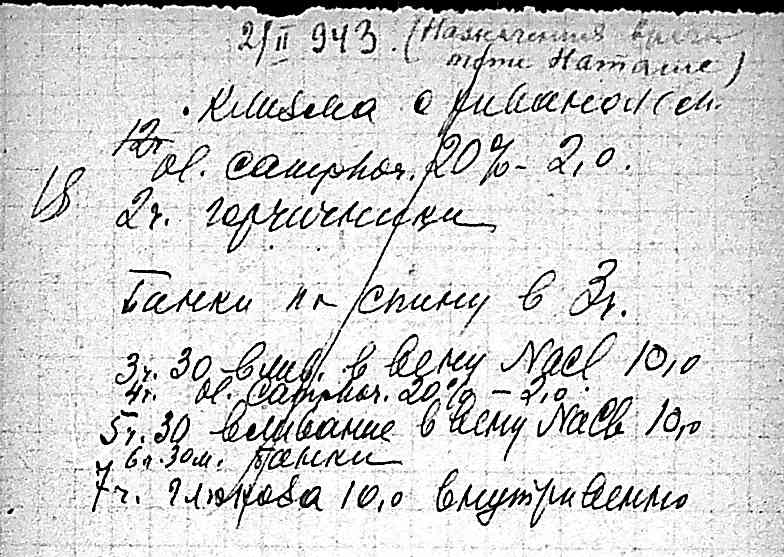 21/II 943. (Назначения врача
тёти Наташе)
Клизма с риванолем
12ч.
Ol. camphor. 20% - 2,0.
2ч. горчичники
Банки на спину в 3ч.
3ч. 30 влив. в вену NaCl 10,0
4ч. ol. camphor. 20% - 2,0.
5ч. 30 вливание в вену NaCl 10,0
6ч. 30м. Банки
7ч. глюкоза 10,0 внутривенно